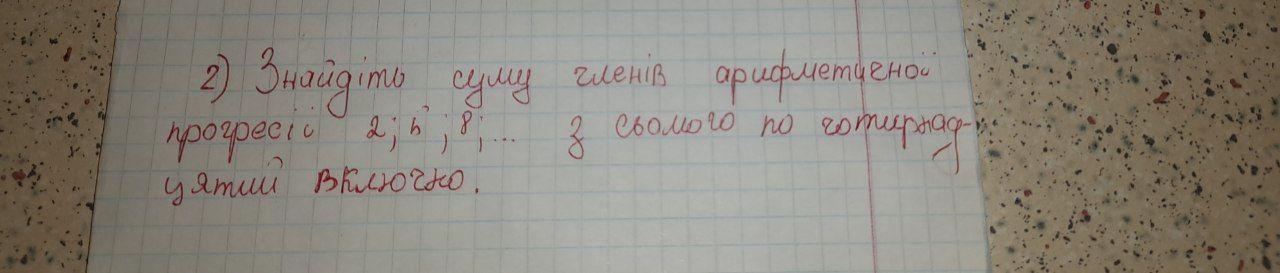 2) Знайдіть суму членів арифметичної
прогресії 2; 5; 8; ... з сьомого по чотирнад-
цятий включно.